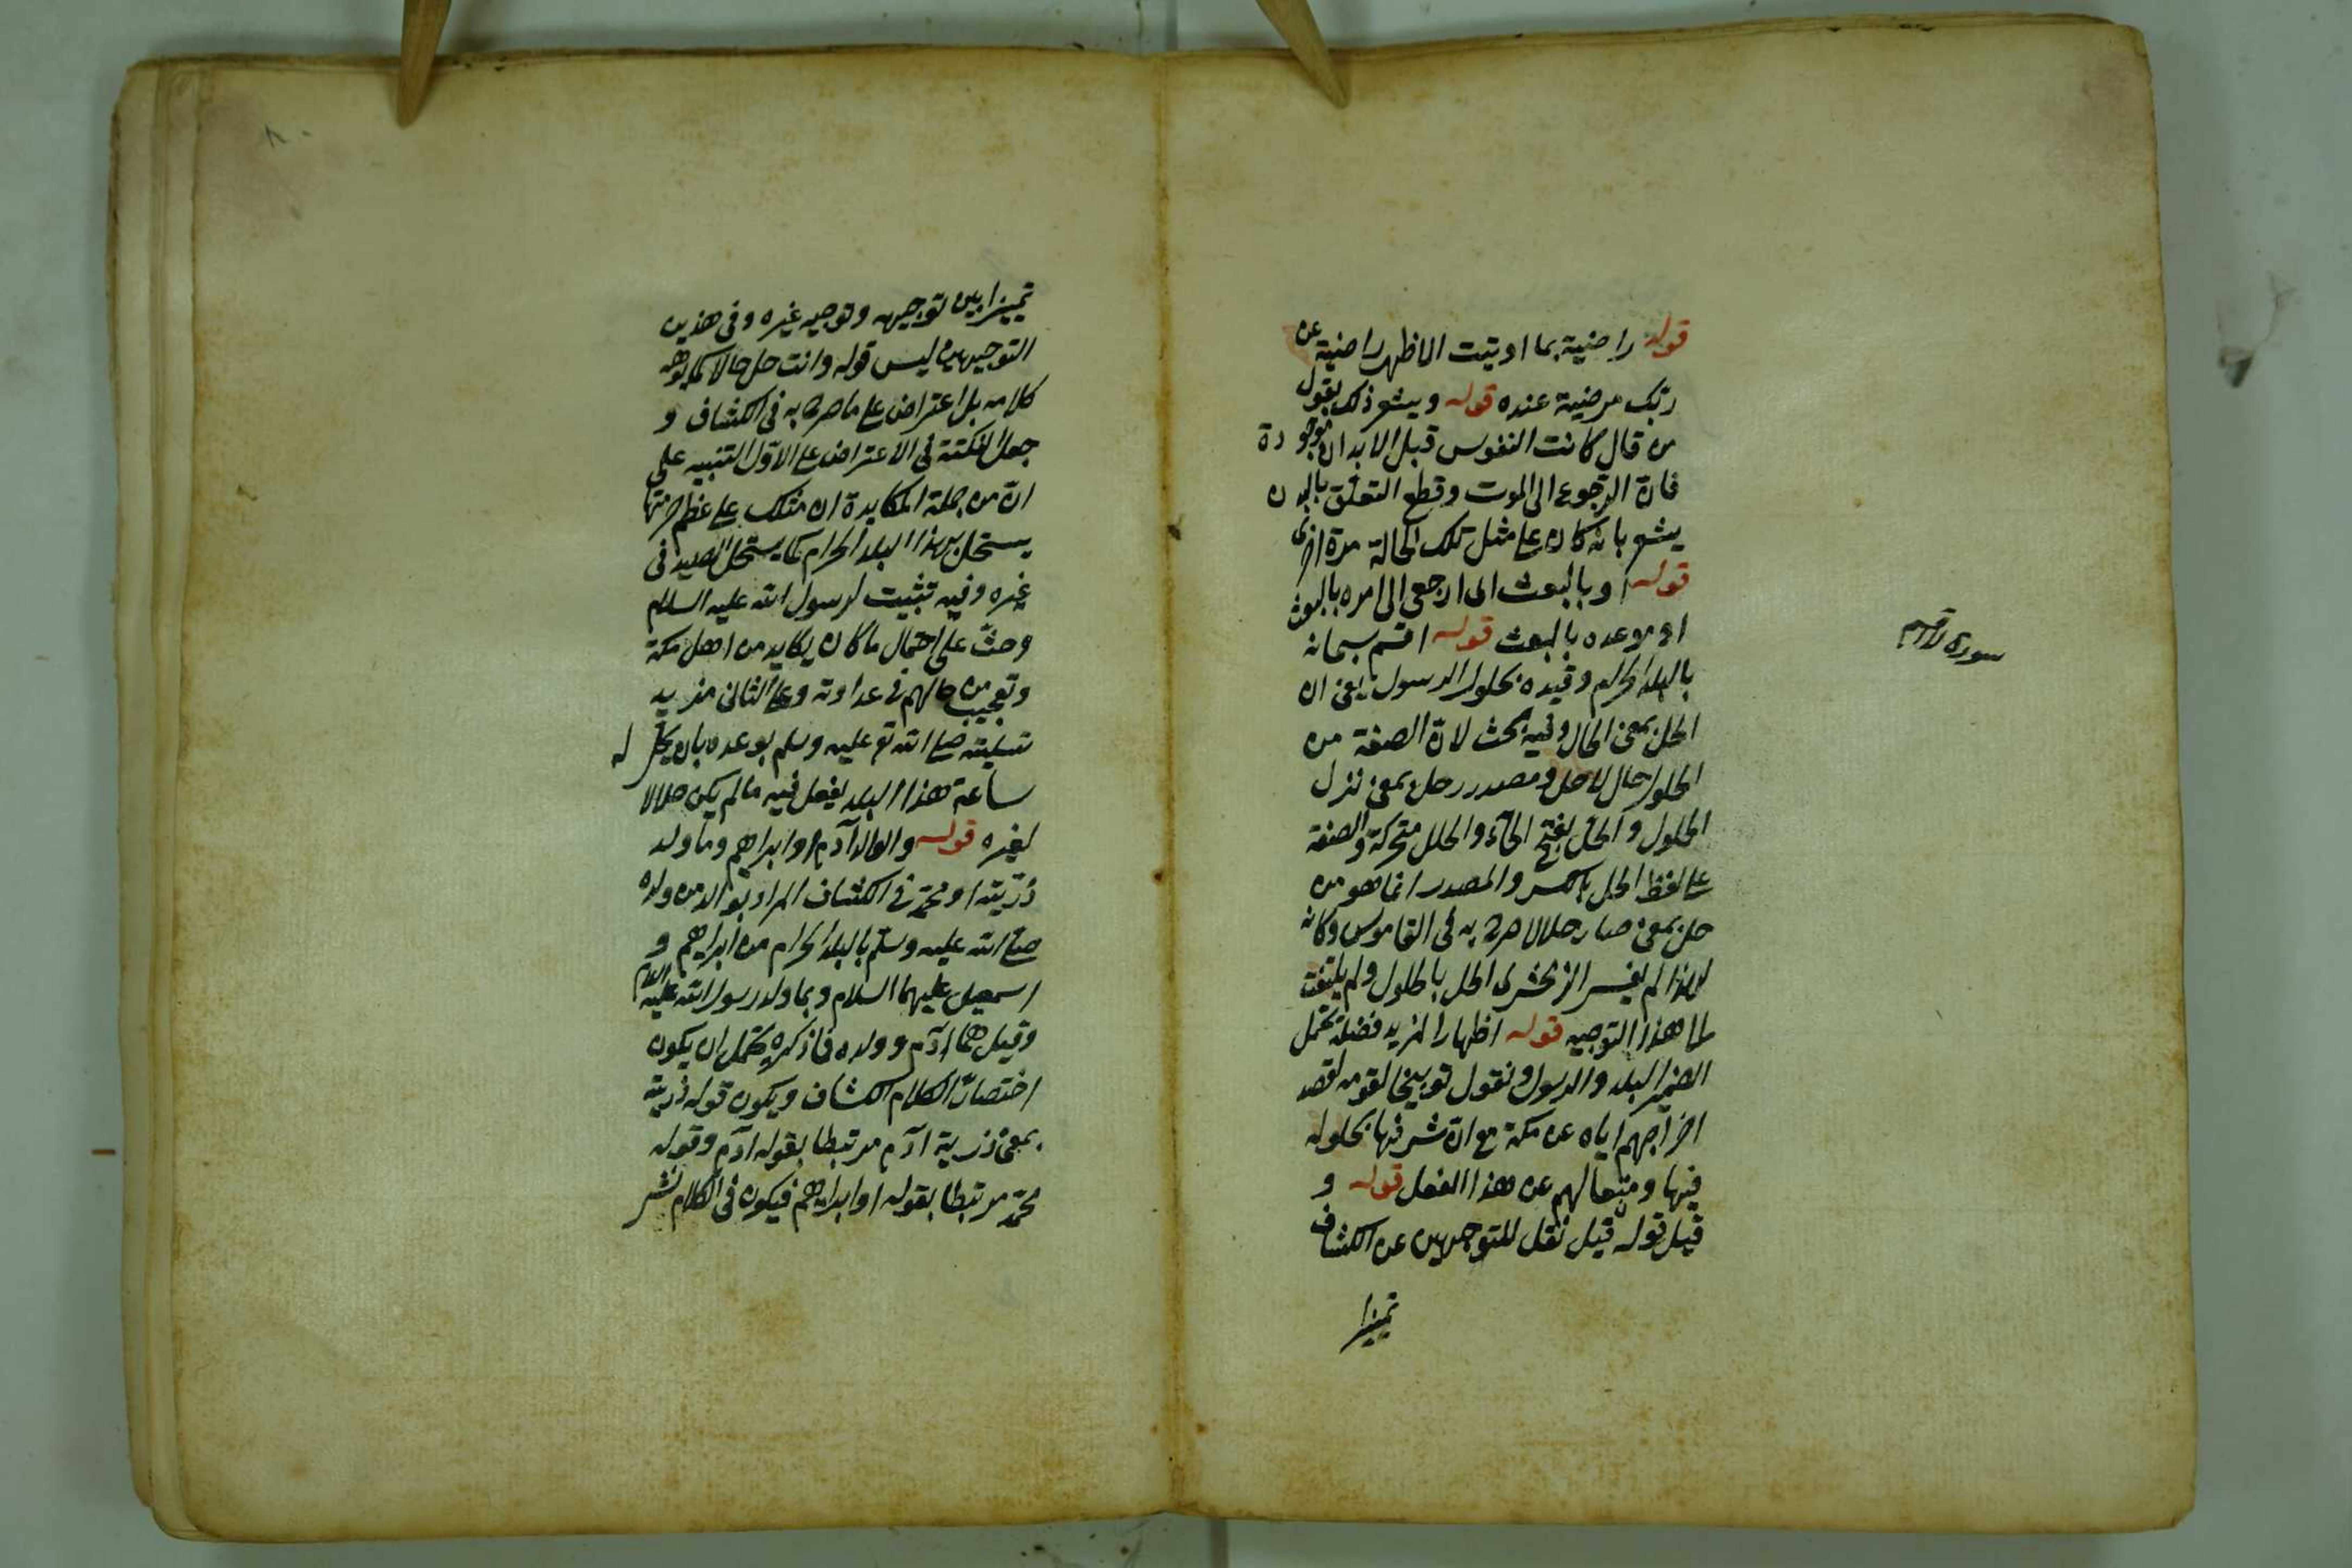 قوله راضية بما اوتيت الاظهر راضية عن
ربك مرضية عنده قوله ويشعر ذلك بقول
من قال كانت النفوس قبل الابدان موجودة
فان الرجوع الى الموت وقطع التعلق بالبدن
يشعر بانه كان على مثل تلك الحالة مرة اخرى
قوله او بالبعث اى ارجعى الى امره بالبعث
او موعده بالبعث قوله اقسم سبحانه
سورة لا اقسم
بالبلد الحرام وقيده بحلول الرسول يعنى ان
الحل بمعنى الحال وفيه بحث لان الصفة من
الحلول حال لا حل ومصدر حل بمعنى نزل
الحلول والحل بفتح الحاء والحلل متحركة والصفة
على لفظ الحل بالكسر والمصدر انما هو من
حل بمعنى صار حلالا صرح به فى القاموس وكانه
لهذا لم يفسر الزمخشرى الحل بالحلول ولم يلتفت
لما هذا التوجيه قوله اظهارا لمزيد فضله يحتمل
الضمير البلد والرسول ونقول توبيخا لقومه لقصد
اخراجهم اياه عن مكة مع ان شرفها بحلوله
فيها ومنعا لهم عن هذا الفعل قوله و
قيل قوله قيل نقل للتوجيهين عن الكشاف
تميزا
تميزا بين توجيهه وتوجيه غيره وفى هذين
التوجيهين ليس قوله وانت حل حالا كما يوهمه
كلامه بل اعتراض على ما صرح به فى الكشاف و
جعل النكتة فى الاعتراض على الاول التنبيه على
ان من جملة المكابدة ان مثلك على عظم حرمتها
يستحل بهذا البلد الحرام كما يستحل الصيد فى
غيره وفيه تثبيت لرسول الله عليه السلام
وحث على احتمال ما كان يكابد من اهل مكة
وتعجيب من حالهم فى عداوته وعلى الثانى مزيد
تسليته صلى الله تع عليه وسلم بوعده بان يحل له
ساعة هذا البلد يفعل فيه مالم يكن حلالا
لغيره قوله والوالد آدم او ابراهيم وما ولد
ذريته او محمد فى الكشاف المراد بوالد من ولده
صلى الله عليه وسلم بالبلد الحرام من ابراهيم و
اسمعيل عليهما السلام وبما ولد رسول الله عليه السلام
وقيل هما آدم وولده فما ذكره يحتمل ان يكون
اختصارا لكلام الكشاف ويكون قوله ذريته
بمعنى ذرية آدم مرتبطا بقوله آدم وقوله
محمد مرتبطا بقوله او ابراهيم فيكون فى الكلام نشر